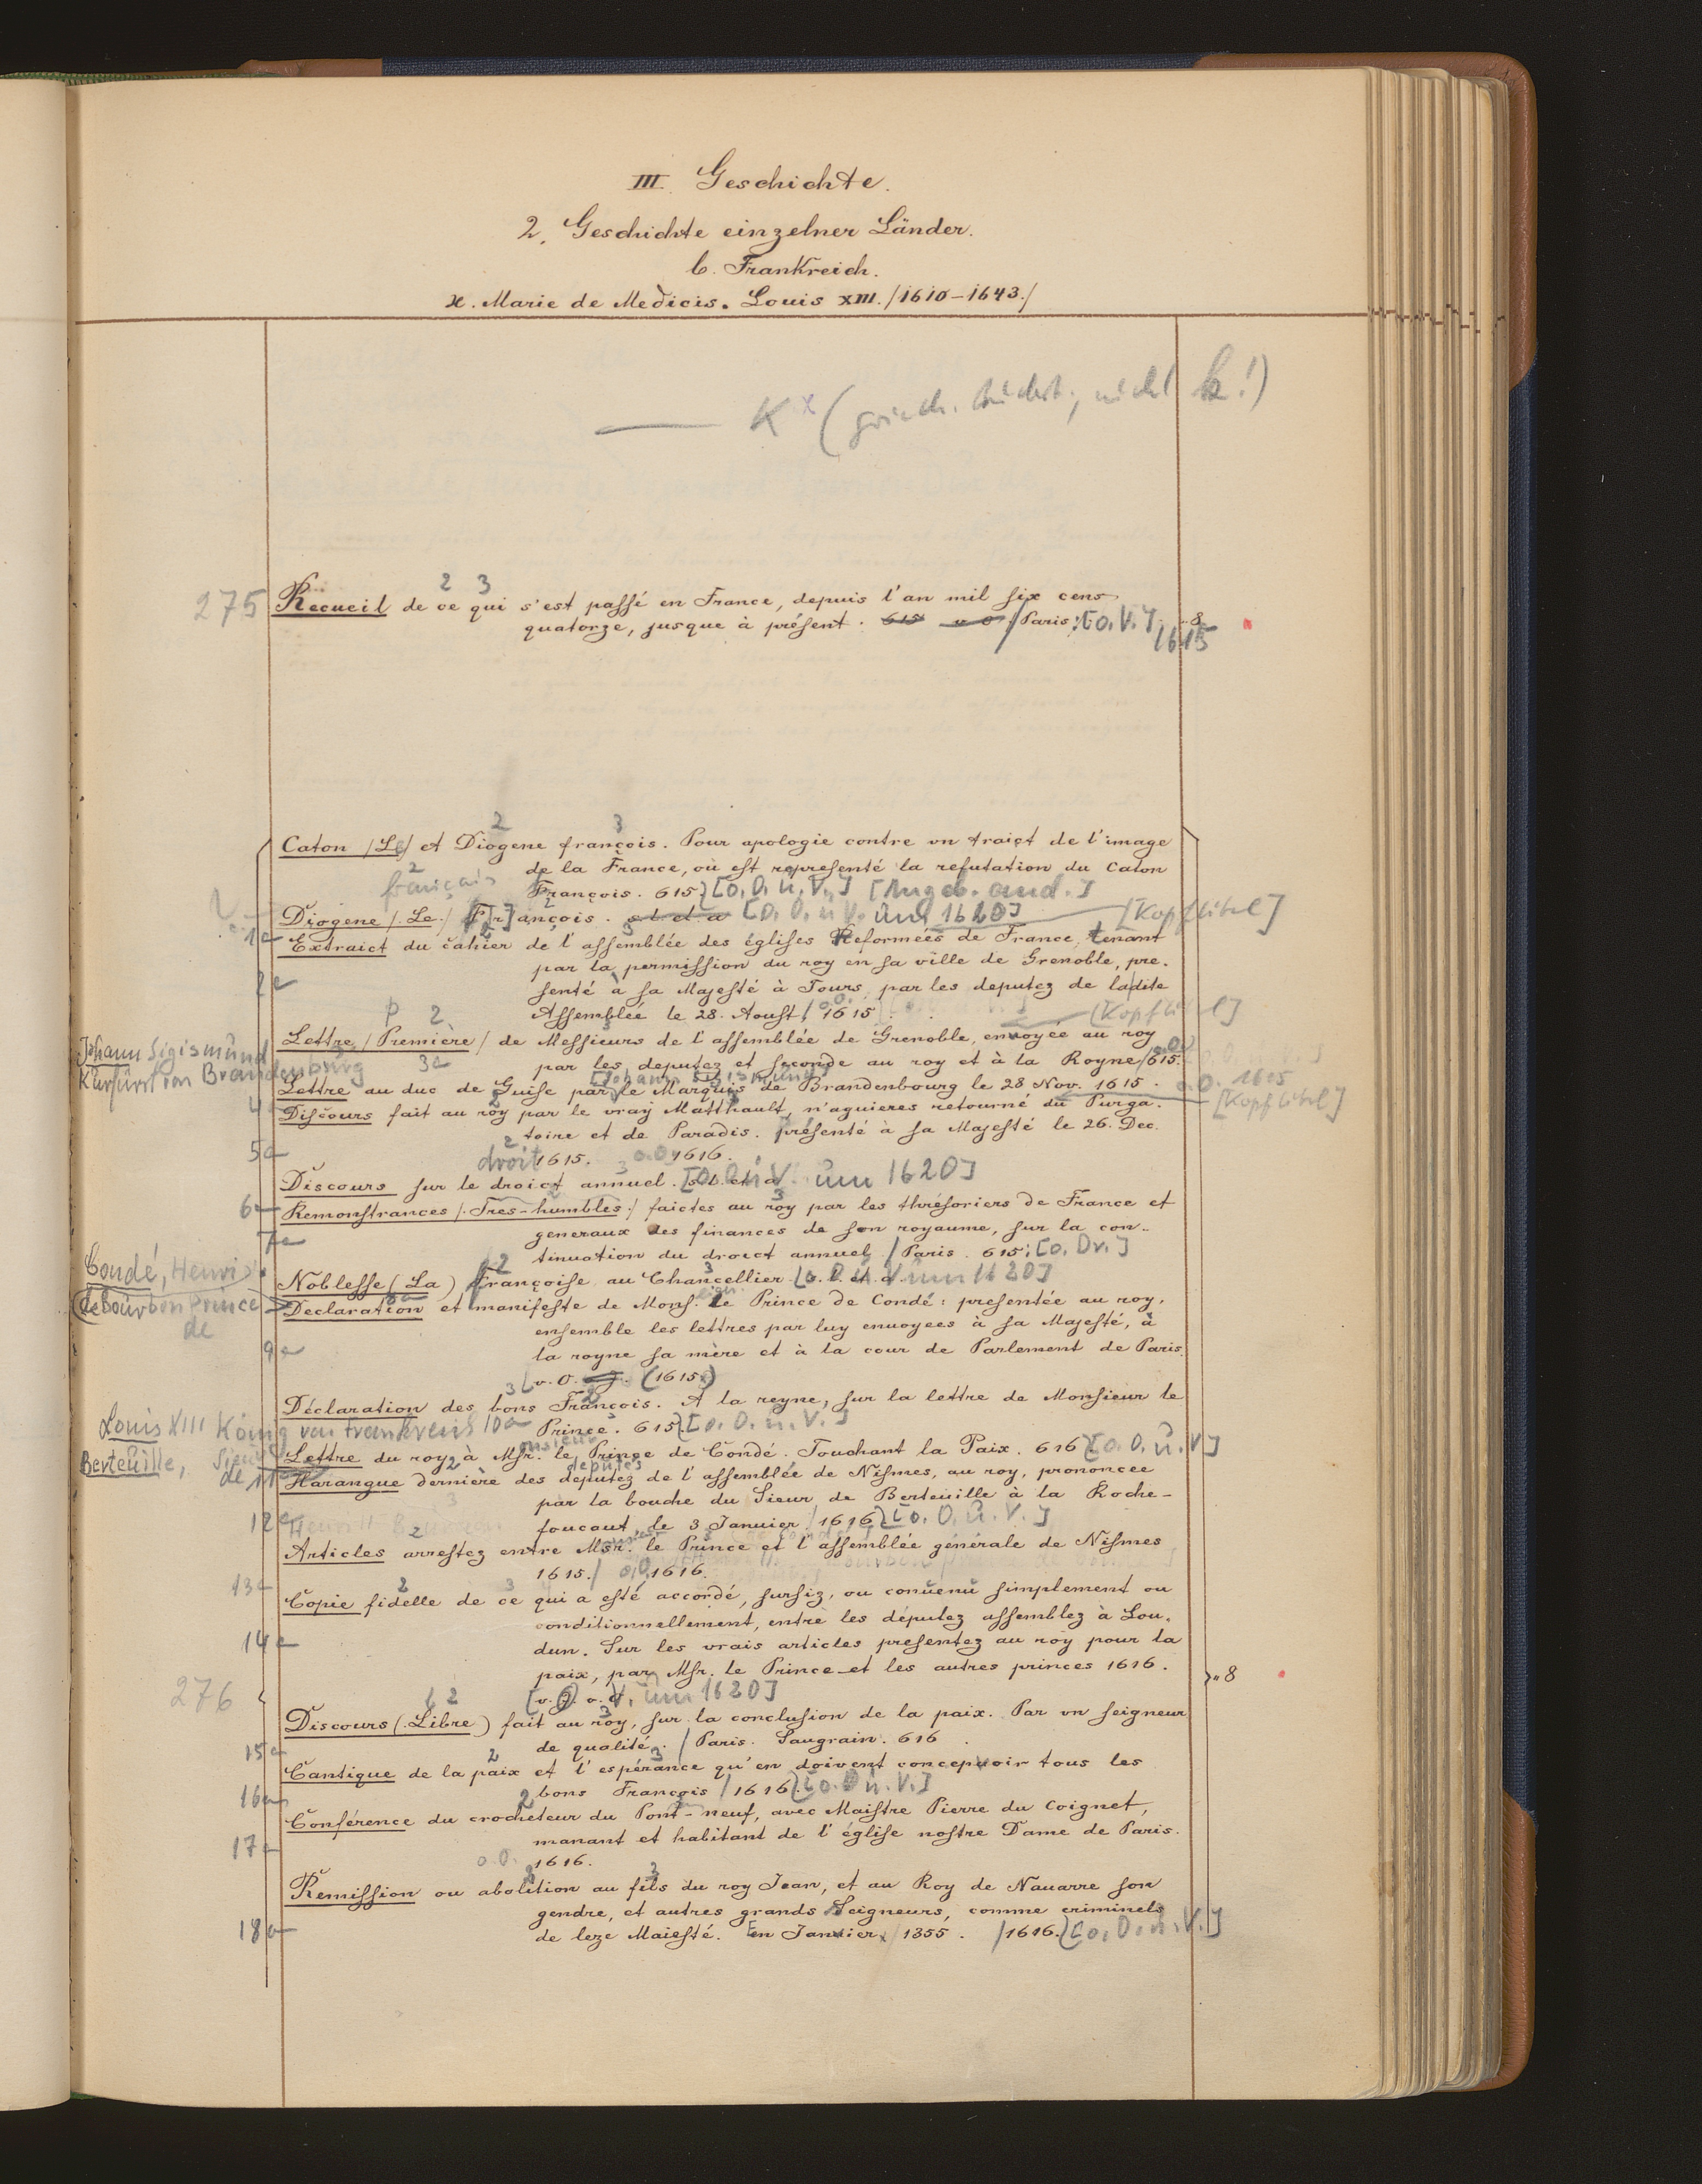 III. Geschichte.
2. Geschichte einzelner Länder.
b. Frankreich.
ϰ. Marie de Medicis. Louis XIII. /1610-1643./
K (griech. Buchst., nicht k!)
2 3
275 Recueil de ce qui s'est passé en France, depuis l'an mil six cens
quatorze, jusque à présent. 615 v. O. / Paris: [o. V.], 8
1615
2 3
Caton /Le/ et Diogene françois. Pour apologie contre vn traict de l'image
de la France, où est representé la refutation du Caton
français 2
François. 615 [o. O. u. V.] [Angeb. and.]
Diogene /. Le ./ François. s. l. et a [o. O. u V. um 1620] [Kopftitel]
1a
Extraict du cahier de l'assemblée des églises Reformées de France, tenant
par la permission du roy en sa ville de Grenoble, pre-
2a
senté à sa Majesté à Tours, par les deputez de ladite
Assemblée le 28. Aoust / o.O. 1615. [Kopftitel]
P 2
Lettre /Première/ de Messieurs de l'assemblée de Grenoble, envoyée au roy
Johann Sigismund
3a
par les deputez et seconde au roy et à la Royne /615.
Kurfürst von Brandenburg
[Johann Sigismund]
Lettre au duc de Guise par le Marquis de Brandenbourg le 28 Nov. 1615. o.O. 1615
[Kopftitel]
4a
Discours fait au roy par le vray Matthault, n'aguieres retourné du Purga-
toire et de Paradis. présenté à sa Majesté le 26. Dec.
5a
1615. o.O. 1616.
droit
Discours sur le droict annuel. s. l. et a [o. O. u. V. um 1620]
6a
Remonstrances /. Tres-humbles ./ faictes au roy par les thrésoriers de France et
generaux des finances de son royaume, sur la con-
7a
tinuation du droict annuel. / Paris. 615: [o. Dr.]
Condé, Henri
Noblesse (La) Françoise au Chancellier. s. l. et a [o. O. u. V. um 1620]
de Bourbon Prince de
8a
Declaration et manifeste de Mons. le Prince de Condé: presentée au roy,
ensemble les lettres par luy enuoyees à sa Majesté, à
9a
la royne sa mère et à la cour de Parlement de Paris.
v. O. (1615.)
Déclaration des bons François. A la reyne, sur la lettre de Monsieur le
Louis XIII König von Frankreich 10a
Prince. 615 [o. O. u. V.]
Lettre du roy à Msr. le Prince de Condé. Touchant la Paix. 616 [o. O. u. V]
Berteuille, Sieur de 11a
députés
Harangue dernière des deputez de l'assemblée de Nismes, au roy, prononcee
par la bouche du Sieur de Berteuille à la Roche-
12a
foucaut, de 3 Januier /1616 [o. O. u. V.]
Articles arrestez entre Msr. le Prince et l'assemblée générale de Nismes
1615./ o.O. 1616.
13a
Copie fidelle de ce qui a esté accordé, sursiz, ou conuenu simplement ou
conditionnellement, entre les députez assemblez à Lou-
14a
dun. Sur les vrais articles presentez au roy pour la
paix, par Msr. le Prince et les autres princes 1616.
276 " 8
[o. O. u. V. um 1620]
Discours (. Libre) fait au roy, sur la conclusion de la paix. Par vn seigneur
15a
de qualité. / Paris. Saugrain. 616
Cantique de la paix et l'espérance qu'en doivent concepuoir tous les
16a
bons François /1616 [o. O u. V.]
Conférence du crocheteur du Pont-neuf, avec Maistre Pierre du Coignet,
17a
manant et habitant de l'église nostre Dame de Paris.
o. O. 1616.
Remission ou abolition au fils du roy Jean, et au Roy de Nauarre son
gendre, et autres grands Seigneurs, comme criminels
18a
de leze Maiesté. En Januier /1355. /1616. [o. O. u. V.]